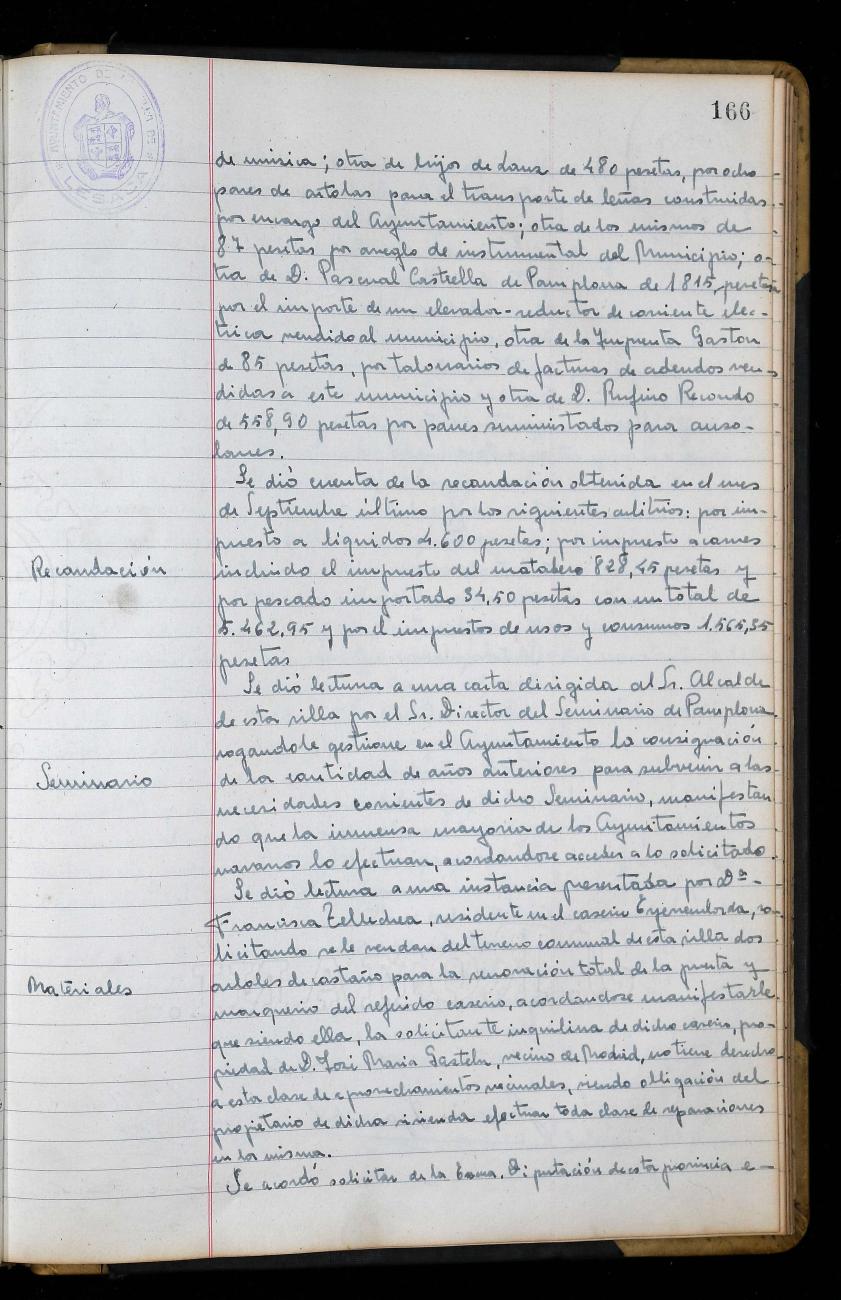 166
AYUNTAMIENTO DE LA VILLA DE
LESACA
de música; otra de hijos de Lanz de 480 pesetas, por ocho
pares de artolas para el transporte de leñas construidas
por encargo del Ayuntamiento; otra de los mismos de
87 pesetas por arreglo de instrumental del Municipio; o-
tra de D. Pascual Castrella de Pamplona de 1815, pesetas
por el importe de un elevador-reductor de corriente eléc-
trica vendido al municipio, otra de la Imprenta Gaston
de 85 pesetas, por talonarios de facturas de adeudos ven-
didas a este municipio y otra de D. Rufino Recondo
de 558,90 pesetas por panes suministrados para auzo-
lanes.
Se dió cuenta de la recaudación obtenida en el mes
de Septiembre último por los siguientes arbitrios: por im-
puesto a liquidos 4.600 pesetas; por impuesto a carnes
Recaudación
incluido el impuesto del matadero 828,45 pesetas y
por pescado importado 34,50 pesetas con un total de
5.462,95 y por el impuestos de usos y consumos 1.565,35
pesetas
Se dió lectura a una carta dirigida al Sr. Alcalde
de esta villa por el Sr. Director del Seminario de Pamplona
rogandole gestione en el Ayuntamiento la consignación
Seminario
de la cantidad de años anteriores para subvenir a las
necesidades corrientes de dicho Seminario, manifestan
do que la inmensa mayoria de los Ayuntamientos
navarros lo efectuan, acordandose acceder a lo solicitado.
Se dió lectura a una instancia presentada por Dª
Francisca Tellechea, residente en el caserio Eyenemborda, so-
licitando se le vendan del terreno comunal de esta villa dos
Materiales
arboles de castaño para la renovación total de la puerta y
marquerio del referido caserio, acordandose manifestarle
que siendo ella, la solicitante inquilina de dicho caserio, pro-
piedad de D. José Maria Gaztelu, vecino de Madrid, no tiene derecho
a esta clase de aprovechamientos vecinales, siendo obligación del
propietario de dicha vivienda efectuar toda clase de reparaciones
en la misma.
Se acordó solicitar de la Exma. Diputación de esta provincia e-